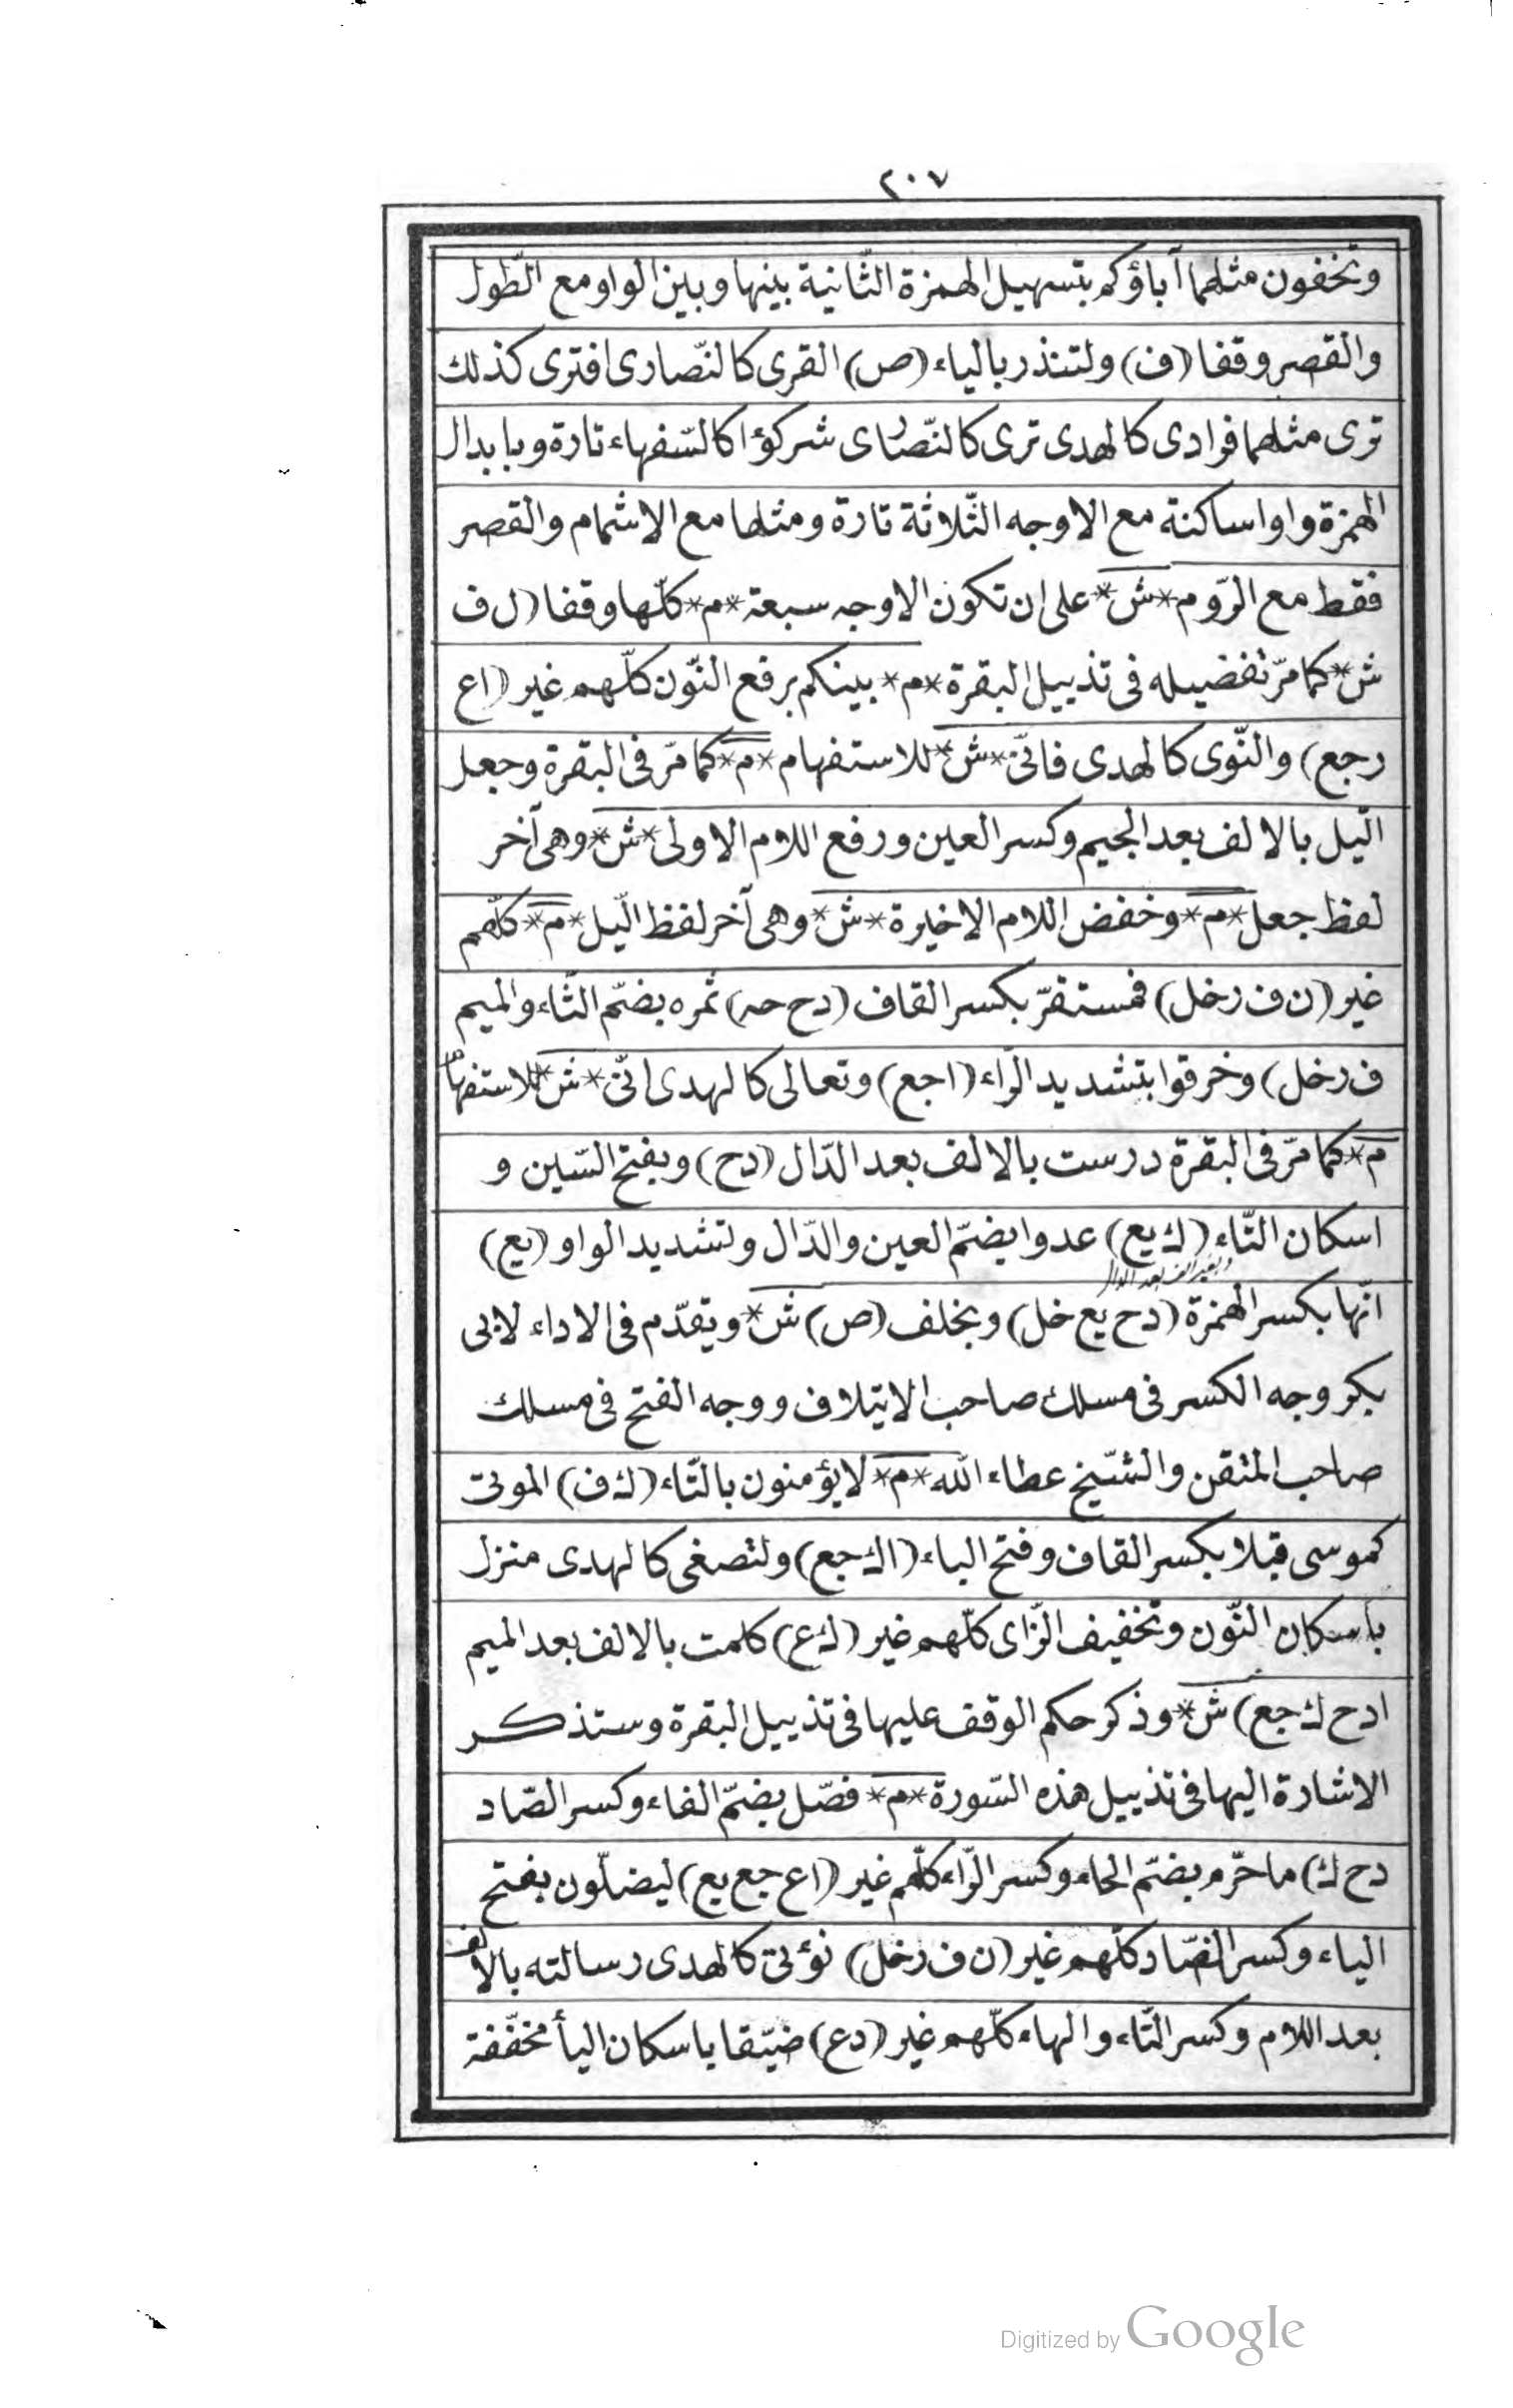 ٢٠٧
وتخفون مثلهما آباؤكم بتسهيل الهمزة الثّانية بينها وبين الواو مع الطّول
والقصر وقفا (ف) ولتنذر بالياء (ص) القرى كالنّصارى افترى كذلك
ترى مثلهما فرادى كالهدى ترى كالنّصارى شركؤا كالسّفهاء تارة وبابدال
الهمزة واوا ساكنة مع الاوجه الثّلاثة تارة ومثلها مع الاشمام والقصر
فقط مع الرّوم *ش* على ان تكون الاوجه سبعة *م* كلّها وقفا (ل ف
ش* كما مرّ تفضيله فى تذييل البقرة *م* بينكم برفع النّون كلّهم غير (اع
رجع) والنّوى كالهدى فانّى *ش* للاستفهام *م* كما مرّ فى البقرة وجعل
الّيل بالالف بعد الجيم وكسر العين ورفع اللام الاولى *ش* وهى آخر
لفظ جعل *م* وخفض اللام الاخيرة *ش* وهى آخر لفظ الّيل *م* كلّهم
غير (ن ف رخل) فمستقرّ بكسر القاف (دح حه) ثمره بضمّ الثّاء والميم
ف رخل) وخرقوا بتشديد الرّاء (اجع) وتعالى كالهدى انّى *ش* للاستفهام
م* كما مرّ فى البقرة درست بالالف بعد الدّال (دح) وبفتح السّين و
اسكان التّاء (ك يع) عدوا بضمّ العين والدّال وتشديد الواو (يع)
وبغير الف بعد الدال
انّها بكسر الهمزة (دح يع خل) وبخلف (ص) ش* ويقدّم فى الاداء لابى
بكر وجه الكسر فى مسلك صاحب الايتلاف ووجه الفتح فى مسلك
صاحب المتقن والشّيخ عطاء الله *م* لا يؤمنون بالتّاء (ك ف) الموتى
كموسى قبلا بكسر القاف وفتح الباء (اك جع) ولتصغى كالهدى منزل
باسكان النّون وتخفيف الزّاى كلّهم غير (ك ع) كلمت بالالف بعد الميم
ادح ك جع) ش* وذكر حكم الوقف عليها فى تذييل البقرة وستذكر
الاشارة اليها فى تذييل هذه السّورة *م* فصّل بضمّ الفاء وكسر الصّاد
دح ك) ما حرّم بضمّ الحاء وكسر الرّاء كلّهم غير (اع جع يع) ليضلّون بفتح
الياء وكسر الضّاد كلّهم غير (ن ف رخل) نؤتى كالهدى رسالته بالالف
بعد اللام وكسر التّاء والهاء كلّهم غير (دع) ضيّقا باسكان اليأ مخفّفة
Digitized by Google